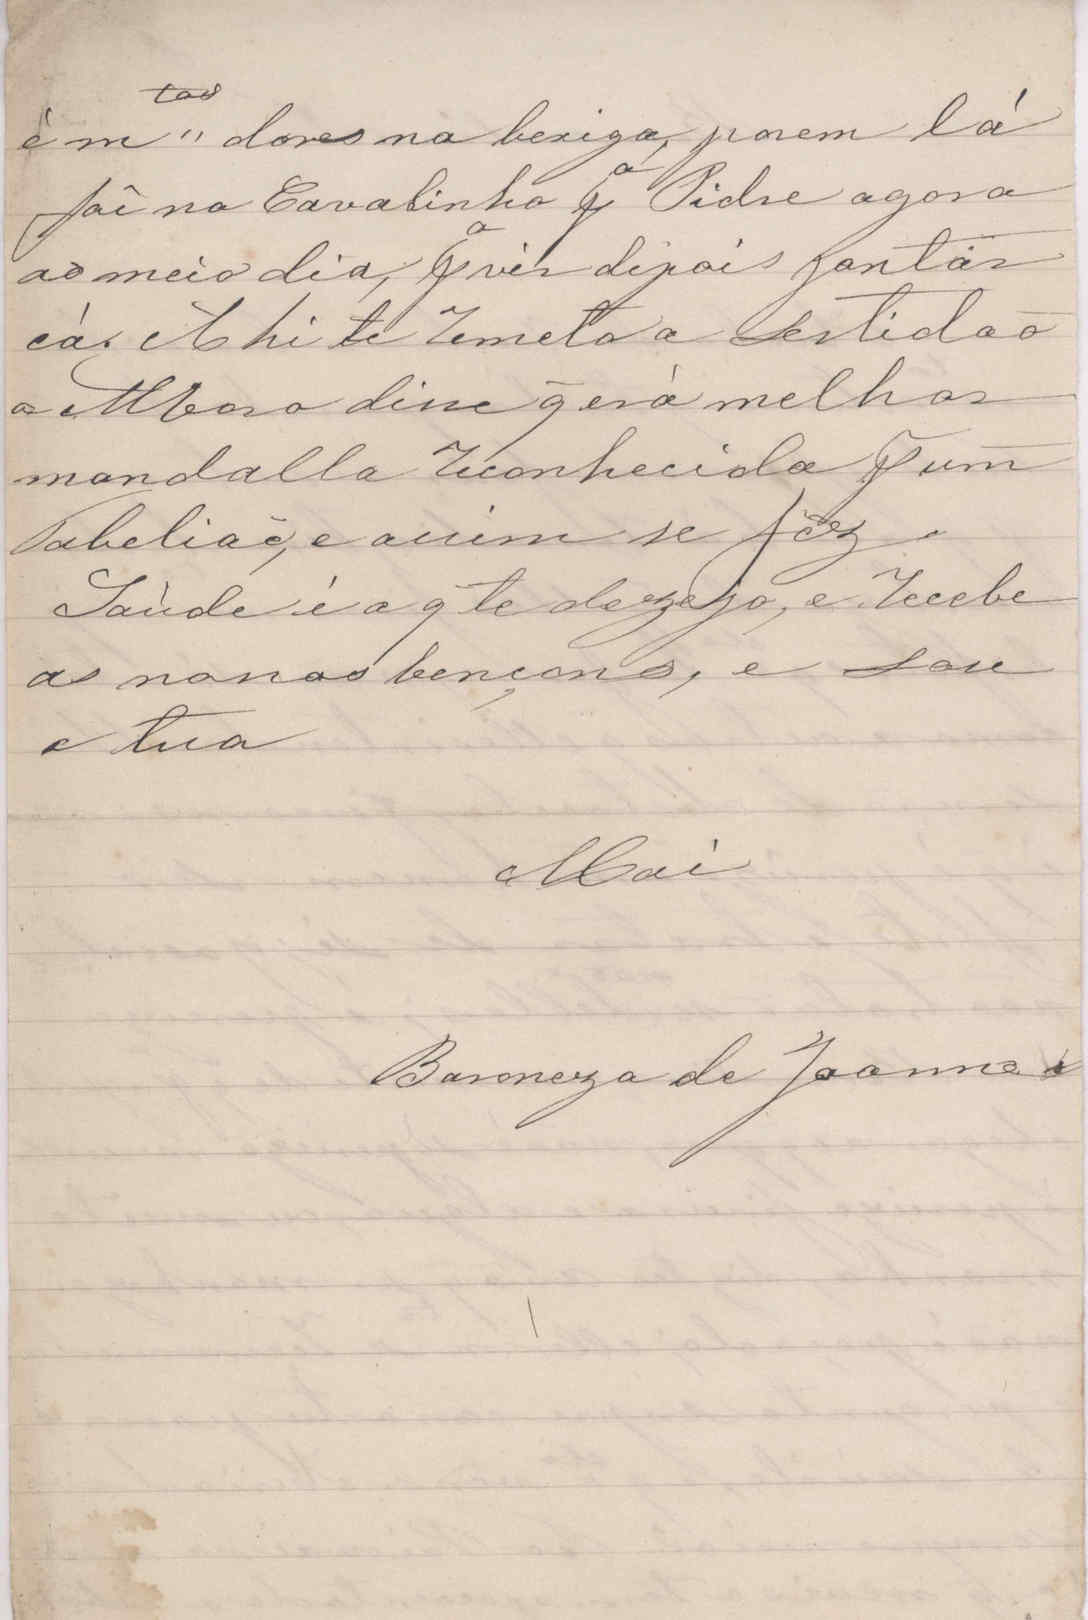 e m.tas dores na bexiga, porem lá
foi no Cavalinho p.a Pidre agora
ao meio dia, p.a vir dipois jantár
cá. Ahi te remeto a Sertidaõ
o Moço disse q̃ erà melhor
mandalla reconhecida p̃ um
Tabeliaõ, e assim se fêz.
Saùde é o q̃ te dezejo, e recebe
as nossas bençons, e sou
a tua
Mai
Baroneza de Joannes